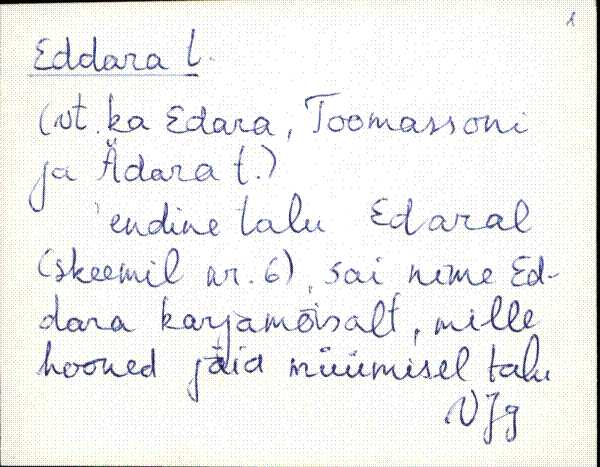 1
Eddara t.
(vt. ka Edara, Toomassoni
ja Ädara t.)
'endine talu Edaral
(skeemil nr. 6), sai nime Ed-
dara karjamõisalt, mille
hooned jäid müümisel talu
VJg